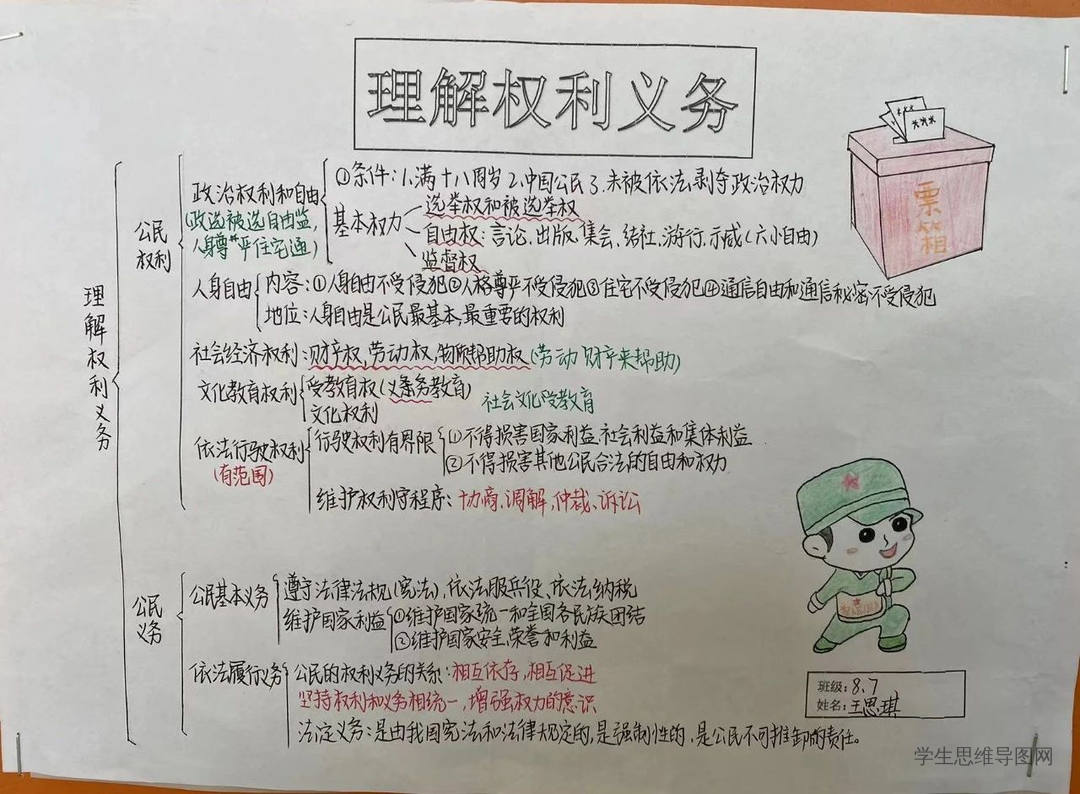 理解权利义务
理解权利义务
公民权利
政治权利和自由
(政选被选自由监,
人身尊严住宅通)
①条件:1.满十八周岁 2.中国公民 3.未被依法剥夺政治权力
基本权力
选举权和被选举权
自由权:言论、出版、集会、结社、游行、示威(六小自由)
监督权
人身自由
内容:①人身自由不受侵犯②人格尊严不受侵犯③住宅不受侵犯④通信自由和通信秘密不受侵犯
地位:人身自由是公民最基本,最重要的权利
社会经济权利:财产权,劳动权,物质帮助权(劳动财产来帮助)
文化教育权利
受教育权(义务教育)
文化权利
社会文化受教育
依法行驶权利
(有范围)
行驶权利有界限
①不得损害国家利益.社会利益和集体利益
②不得损害其他公民合法的自由和权力
维护权利守程序:协商、调解,仲裁、诉讼
公民义务
公民基本义务
遵守法律法规(宪法),依法服兵役、依法纳税
维护国家利益
①维护国家统一和全国各民族团结
②维护国家安全,荣誉和利益
依法履行义务
公民的权利义务的关系:相互依存,相互促进
坚持权利和义务相统一,增强权力的意识
法定义务:是由我国宪法和法律规定的,是强制性的,是公民不可推卸的责任。
票箱
班级:8.7
姓名:王思琪
学生思维导图网